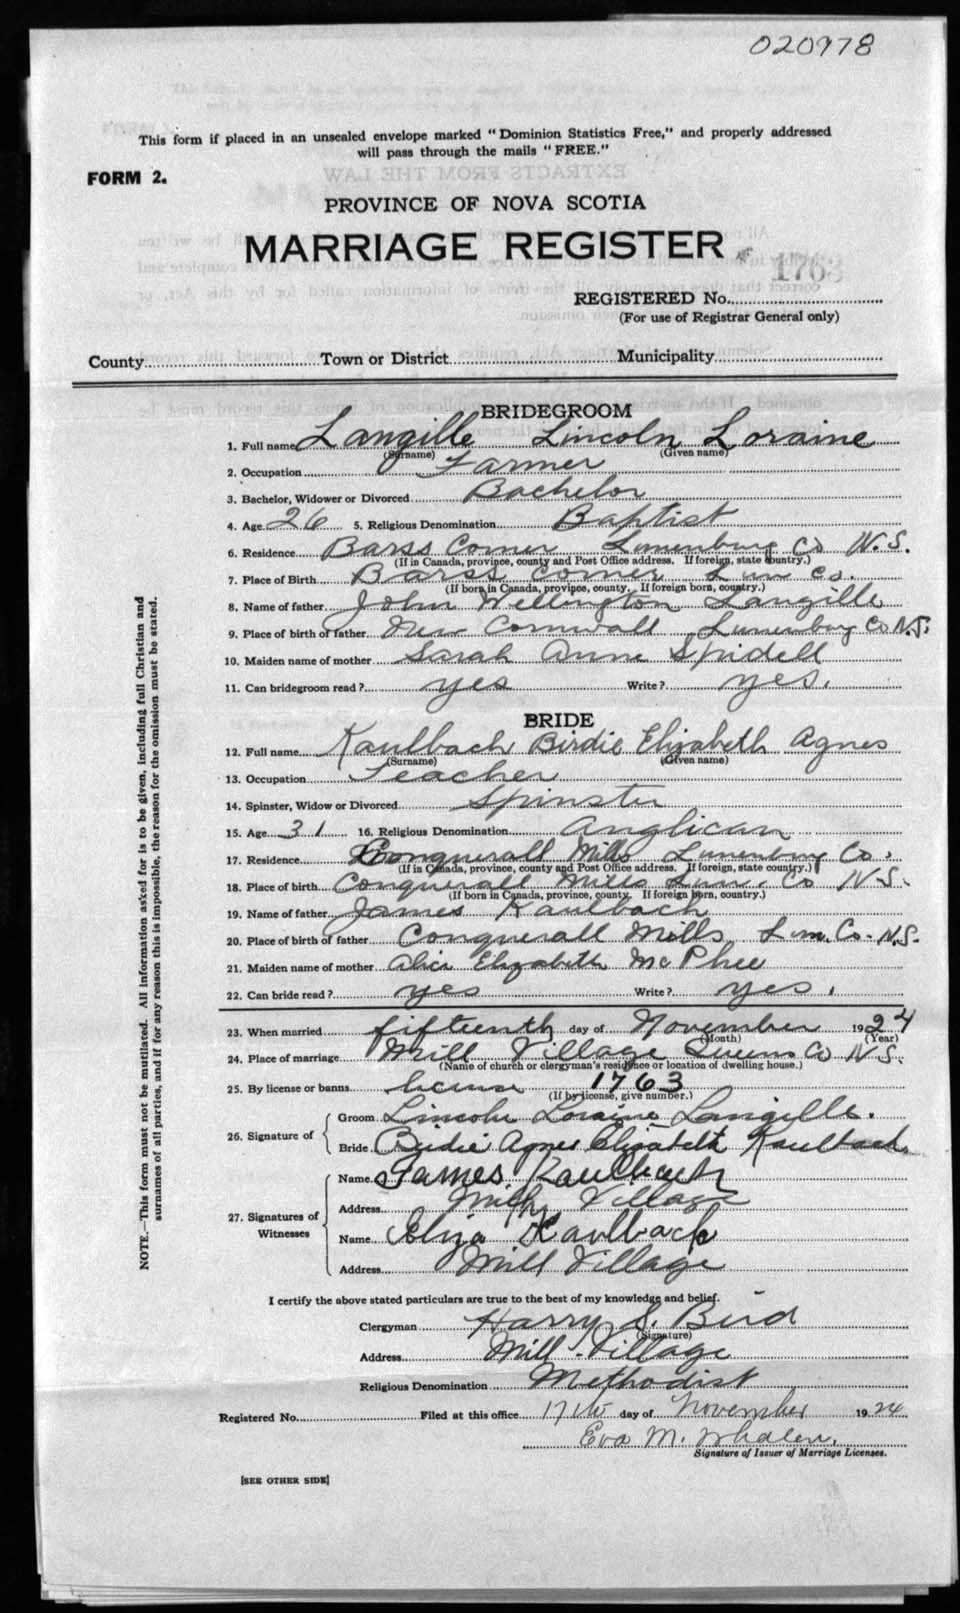 020978
This form if placed in an unsealed envelope marked "Dominion Statistics Free," and properly addressed
will pass through the mails "FREE."
FORM 2.
PROVINCE OF NOVA SCOTIA
MARRIAGE REGISTER
1763
REGISTERED No.
(For use of Registrar General only)
County Town or District Municipality
BRIDEGROOM
1. Full name Langille Lincoln Loraine
(Surname) (Given name)
2. Occupation Farmer
3. Bachelor, Widower or Divorced Bachelor
4. Age 26 5. Religious Denomination Baptist
6. Residence Barss Corner Lunenburg Co N.S.
(If in Canada, province, county and Post Office address. If foreign, state country.)
7. Place of Birth Barss Corner Lun Co.
(If born in Canada, province, county. If foreign born, country.)
8. Name of father John Wellington Langille
9. Place of birth of father New Cornwall Lunenburg Co N.S.
10. Maiden name of mother Sarah Anne Spidell
11. Can bridegroom read? yes Write? yes.
BRIDE
12. Full name Kaulbach Birdie Elizabeth Agnes
(Surname) (Given name)
13. Occupation Teacher
14. Spinster, Widow or Divorced Spinster
15. Age 31 16. Religious Denomination Anglican
17. Residence Conquerall Mills Lunenburg Co.
(If in Canada, province, county and Post Office address. If foreign, state country.)
18. Place of birth Conquerall Mills Lun. Co N.S.
(If born in Canada, province, county. If foreign born, country.)
19. Name of father James Kaulbach
20. Place of birth of father Conquerall Mills Lun. Co. N.S.
21. Maiden name of mother Alice Elizabeth McPhee
22. Can bride read? yes Write? yes.
23. When married fifteenth day of November 1924
(Month) (Year)
24. Place of marriage Mill Village Queens Co N.S.
(Name of church or clergyman's residence or location of dwelling house.)
25. By license or banns license 1763
(If by license, give number.)
26. Signature of
Groom Lincoln Loraine Langille.
Bride Birdie Agnes Elizabeth Kaulbach
27. Signatures of Witnesses
Name James Kaulbach
Address Mill Village
Name Eliza Kaulback
Address Mill Village
I certify the above stated particulars are true to the best of my knowledge and belief.
Clergyman Harry S. Bird
(Signature)
Address Mill Village
Religious Denomination Methodist
Registered No. Filed at this office 17th day of November 1924
Eva M. Whalen.
Signature of Issuer of Marriage Licenses.
[SEE OTHER SIDE]
NOTE.—This form must not be mutilated. All information asked for is to be given, including full Christian and
surnames of all parties, and if for any reason this is impossible, the reason for the omission must be stated.